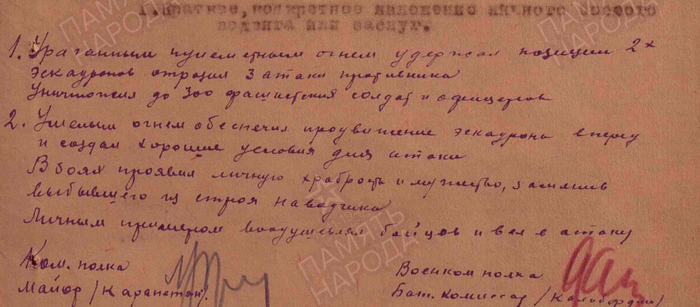 1. Краткое, конкретное изложение личного боевого
подвига или заслуг.
1. Ураганным пулеметным огнем удержал позиции 2х
эскадронов отразил 3 атаки противника
Уничтожил до 300 фашистских солдат и офицеров
2. Умелым огнем обеспечил продвижение эскадрона вперед
и создал хорошие условия для атаки
В боях проявил личную храбрость и мужество, заменив
выбывшего из строя наводчика
Личным примером воодушевлял бойцов и вел в атаку
Ком. полка
Майор /Карапетян/.
Военком полка
Бат. Комиссар /
ПАМЯТЬ НАРОДА